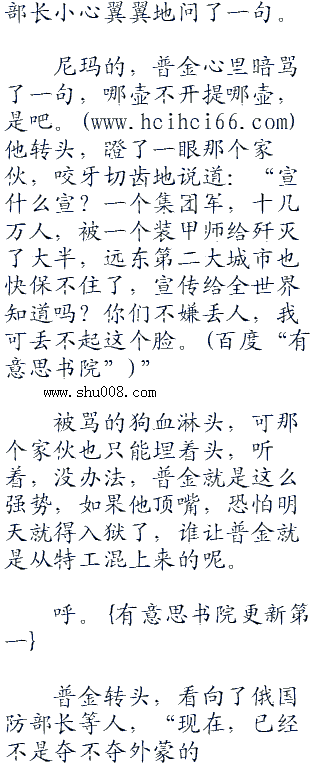 部长小心翼翼地问了一句。
尼玛的，普金心里暗骂
了一句，哪壶不开提哪壶，
是吧。(www.hcihci66.com)
他转头，瞪了一眼那个家
伙，咬牙切齿地说道：“宣
什么宣？一个集团军，十几
万人，被一个装甲师给歼灭
了大半，远东第二大城市也
快保不住了，宣传给全世界
知道吗？你们不嫌丢人，我
可丢不起这个脸。(百度“有
意思书院”)”
www.shu008.com
被骂的狗血淋头，可那
个家伙也只能埋着头，听
着，没办法，普金就是这么
强势，如果他顶嘴，恐怕明
天就得入狱了，谁让普金就
是从特工混上来的呢。
呼。{有意思书院更新第
一}
普金转头，看向了俄国
防部长等人，“现在，已经
不是夺不夺外蒙的